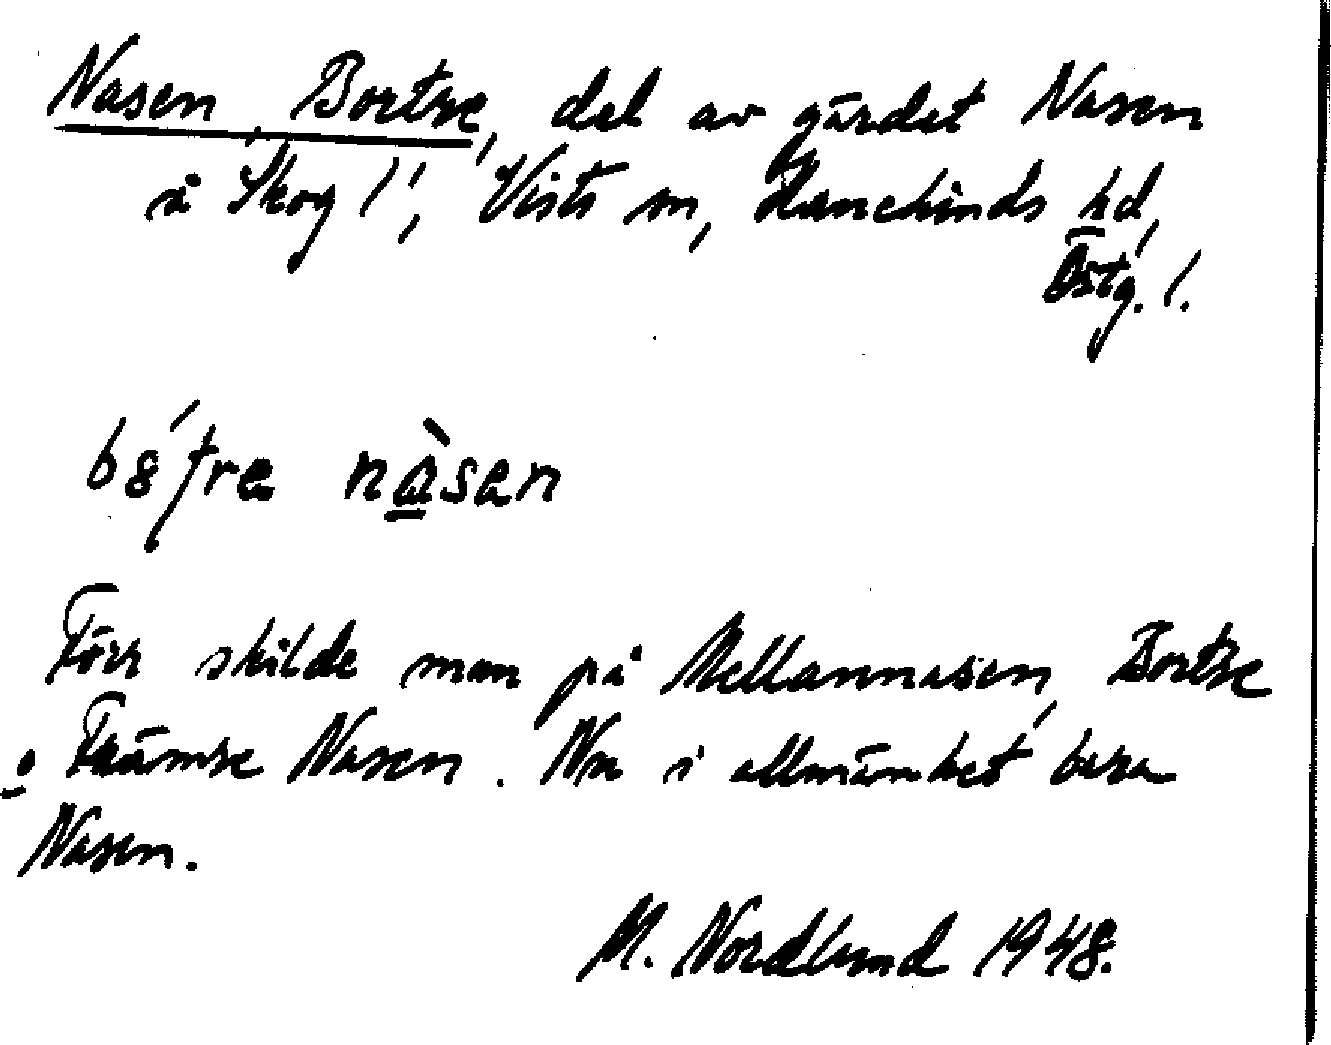 Nasen, Bortre, del av gärdet Nasen
å Skog 1¹, Vists sn, Hanekinds hd,
Östg. l.
bo´tre nàsen
Förr skilde man på Mellannasen, Bortre
o Främre Nasen. Nu i allmänhet bara
Nasen.
M. Nordlund 1948.